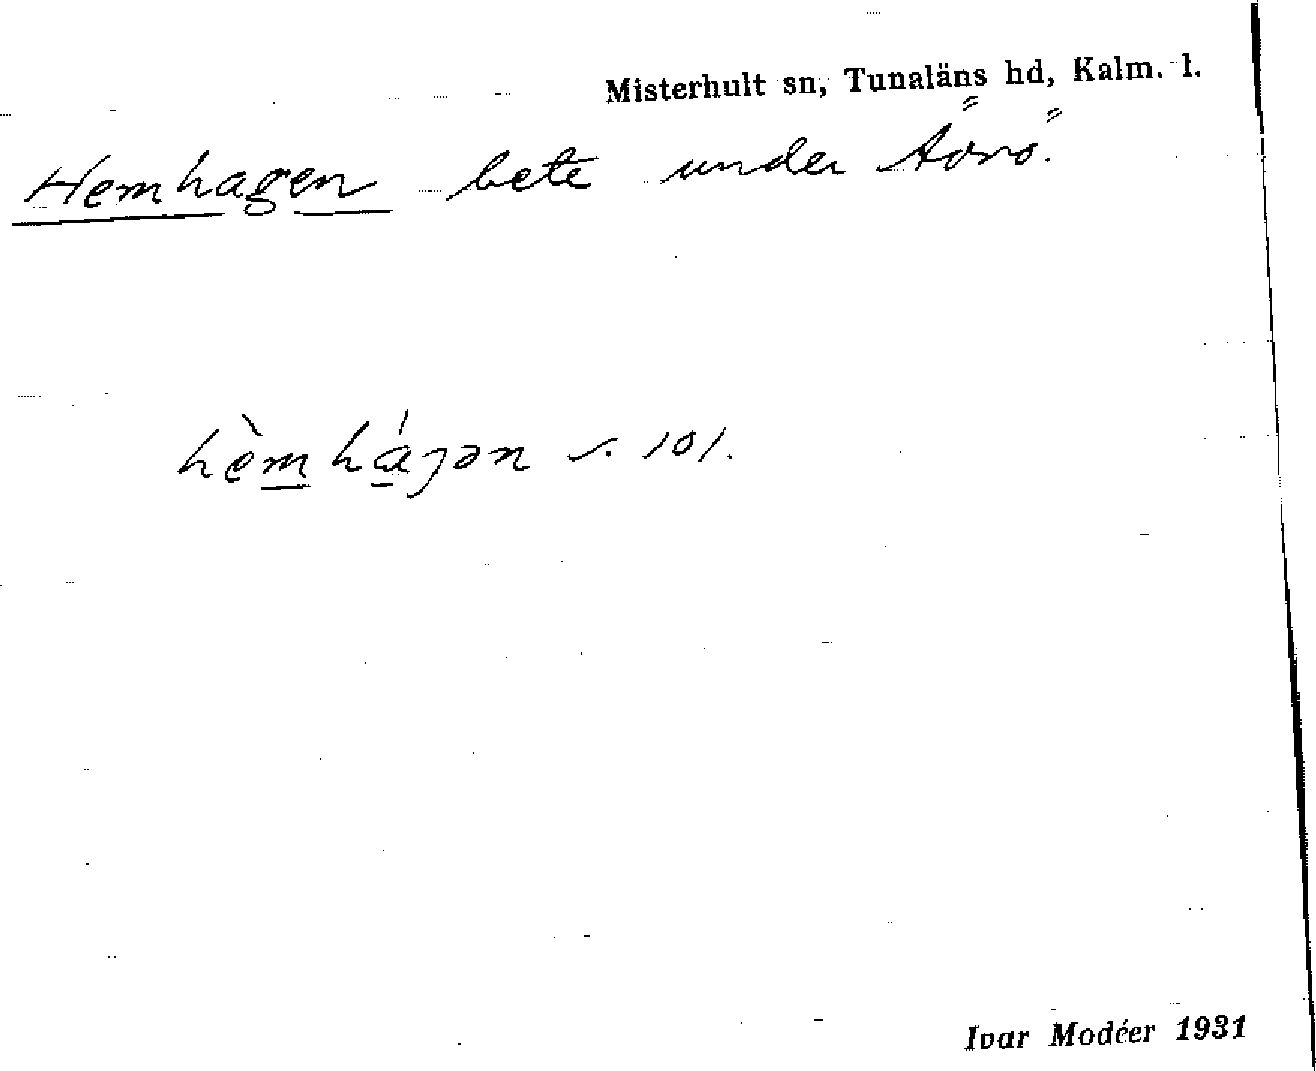 Misterhult sn, Tunaläns hd, Kalm. l.
Hemhagen bete under Äörö.
hèmhágən s. 101.
Ivar Modéer 1931